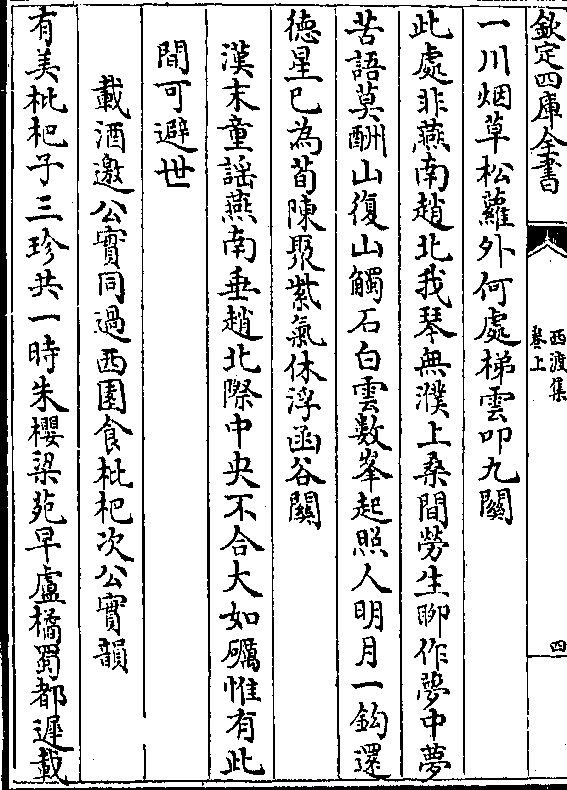 欽定四庫全書
西渡集
卷上
四
一川烟草松蘿外何處梯雲叩九關
此處非燕南趙北我琴無濮上桑間勞生聊作夢中夢
苦語莫酬山復山觸石白雲數峯起照人明月一鉤還
徳星已為荀陳聚紫氣休浮函谷關
漢末童謡燕南垂趙北際中央不合大如礪惟有此
間可避世
載酒邀公實同過西園食枇杷次公實韻
有美枇杷子三珍共一時朱櫻梁苑早盧橘蜀都遲載